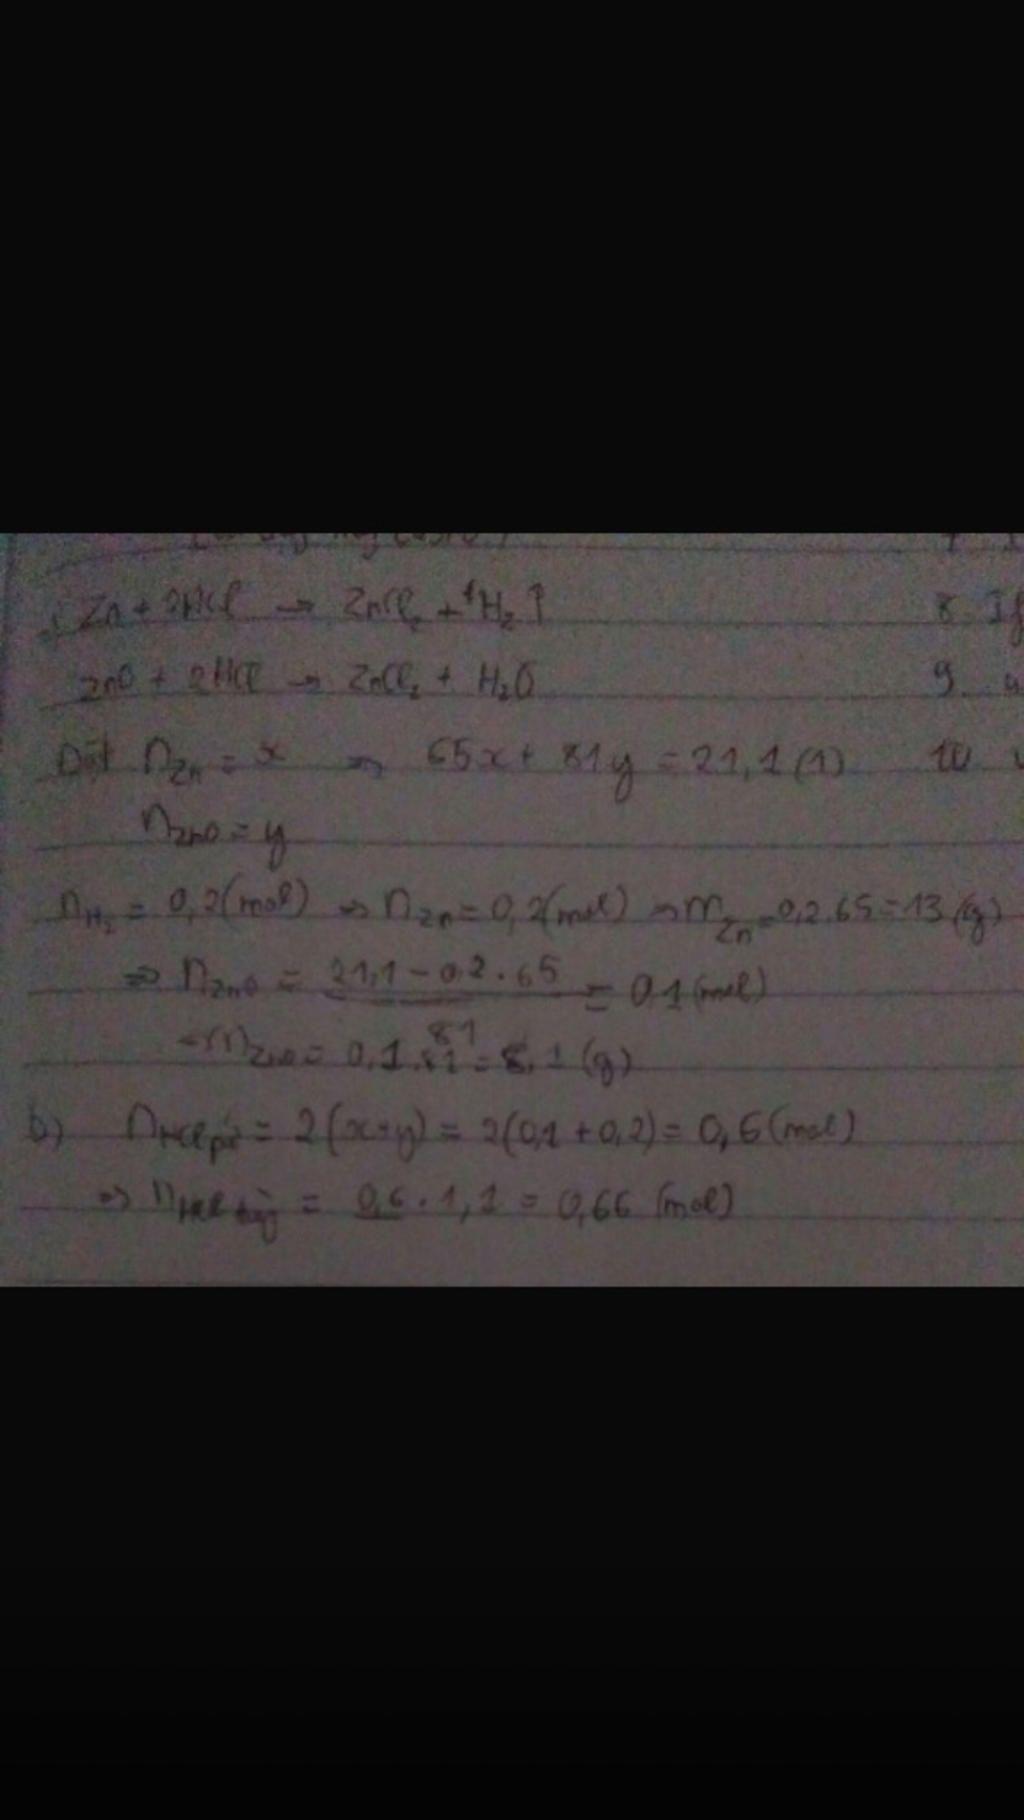 Zn + 2HCl → ZnCl₂ + 1H₂ ↑
ZnO + 2HCl → ZnCl₂ + H₂O
Đặt n_Zn = x ⇒ 65x + 81y = 21,1 (1)
n_ZnO = y
n_H₂ = 0,2(mol) ⇒ n_Zn = 0,2(mol) ⇒ m_Zn = 0,2.65 = 13 (g)
⇒ n_ZnO = 21,1 - 0,2.65 / 81 = 0,1 (mol)
→ m_ZnO = 0,1.81 = 8,1 (g)
b) n_HCl pư = 2(x+y) = 2(0,1 + 0,2) = 0,6 (mol)
⇒ n_HCl = 0,6 . 1,1 = 0,66 (mol)
8 If
9
10